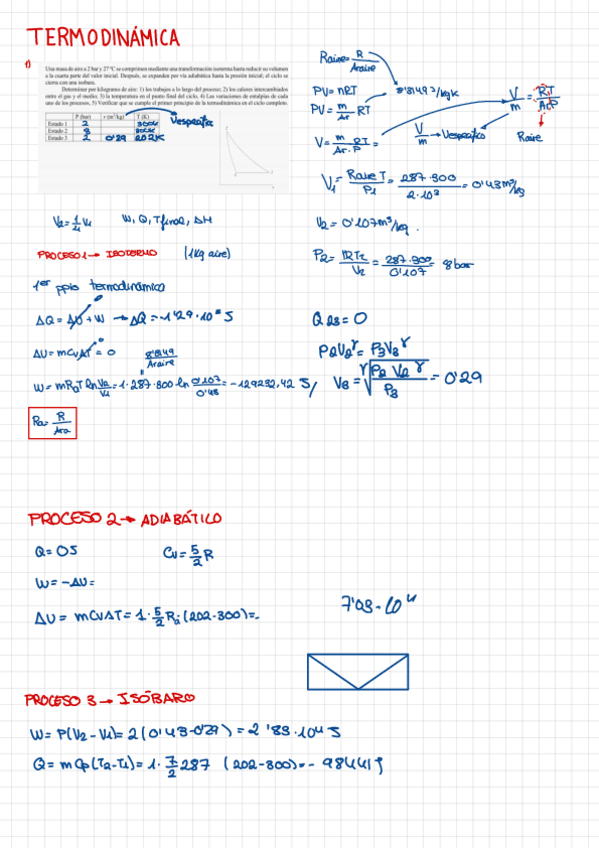 TERMODINÁMICA
1)
Una masa de aire a 2 bar y 27 ºC se comprimen mediante una transformación isoterma hasta reducir su volumen
a la cuarta parte del valor inicial. Después, se expanden por vía adiabática hasta la presión inicial; el ciclo se
cierra con una isobara.
Determinar por kilogramo de aire: 1) los trabajos a lo largo del proceso; 2) los calores intercambiados
entre el gas y el medio; 3) la temperatura en el punto final del ciclo, 4) Las variaciones de entalpías de cada
uno de los procesos, 5) Verificar que se cumple el primer principio de la termodinámica en el ciclo completo.
P (bar) v (m³/kg) T (K)
Estado 1 2 300K
Estado 2 8 300K
Estado 3 2 0'29 202K
Vespecífico
Raire= R/Araire
PV= nRT 8'3149J/kgK
PV= m/Ar RT
V= m/Ar·P RT=
V/m → Vespecífico
V/m = RT/Ar·P
Raire
V1= Raire T/P1 = 287·300/2·10³ = 0'43m³/kg
V2= 0'107m³/kg.
P2= RT2/V2 = 287·300/0'107 = 8bar
V2=1/4 V1 W, Q, Tfinal, ΔH
PROCESO 1 → ISOTERMO (1kg aire)
1er ppio termodinámica
ΔQ= ΔU + W → ΔQ= -1'29·10⁵ J
ΔU= mCvΔT = 0
8'3149/Araire
W= mRaT ln V2/V1 = 1·287·300 ln 0'107/0'43 = -129232,42 J
Ra= R/Ara
Q23=0
P2V2^γ= P3V3^γ
V3= γ√(P2 V2^γ/P3) = 0'29
PROCESO 2 → ADIABÁTICO
Q= 0J Cv= 5/2 R
W= -ΔU=
ΔU= mCvΔT= 1·5/2 Ra (202-300)=-
7'03·10⁴
PROCESO 3 → ISÓBARO
W= P(V2-V1)= 2(0'43-0'29) = 2'83·10⁴ J
Q= mCp(T2-T1)= 1·7/2 287 (202-300)= - 98441J